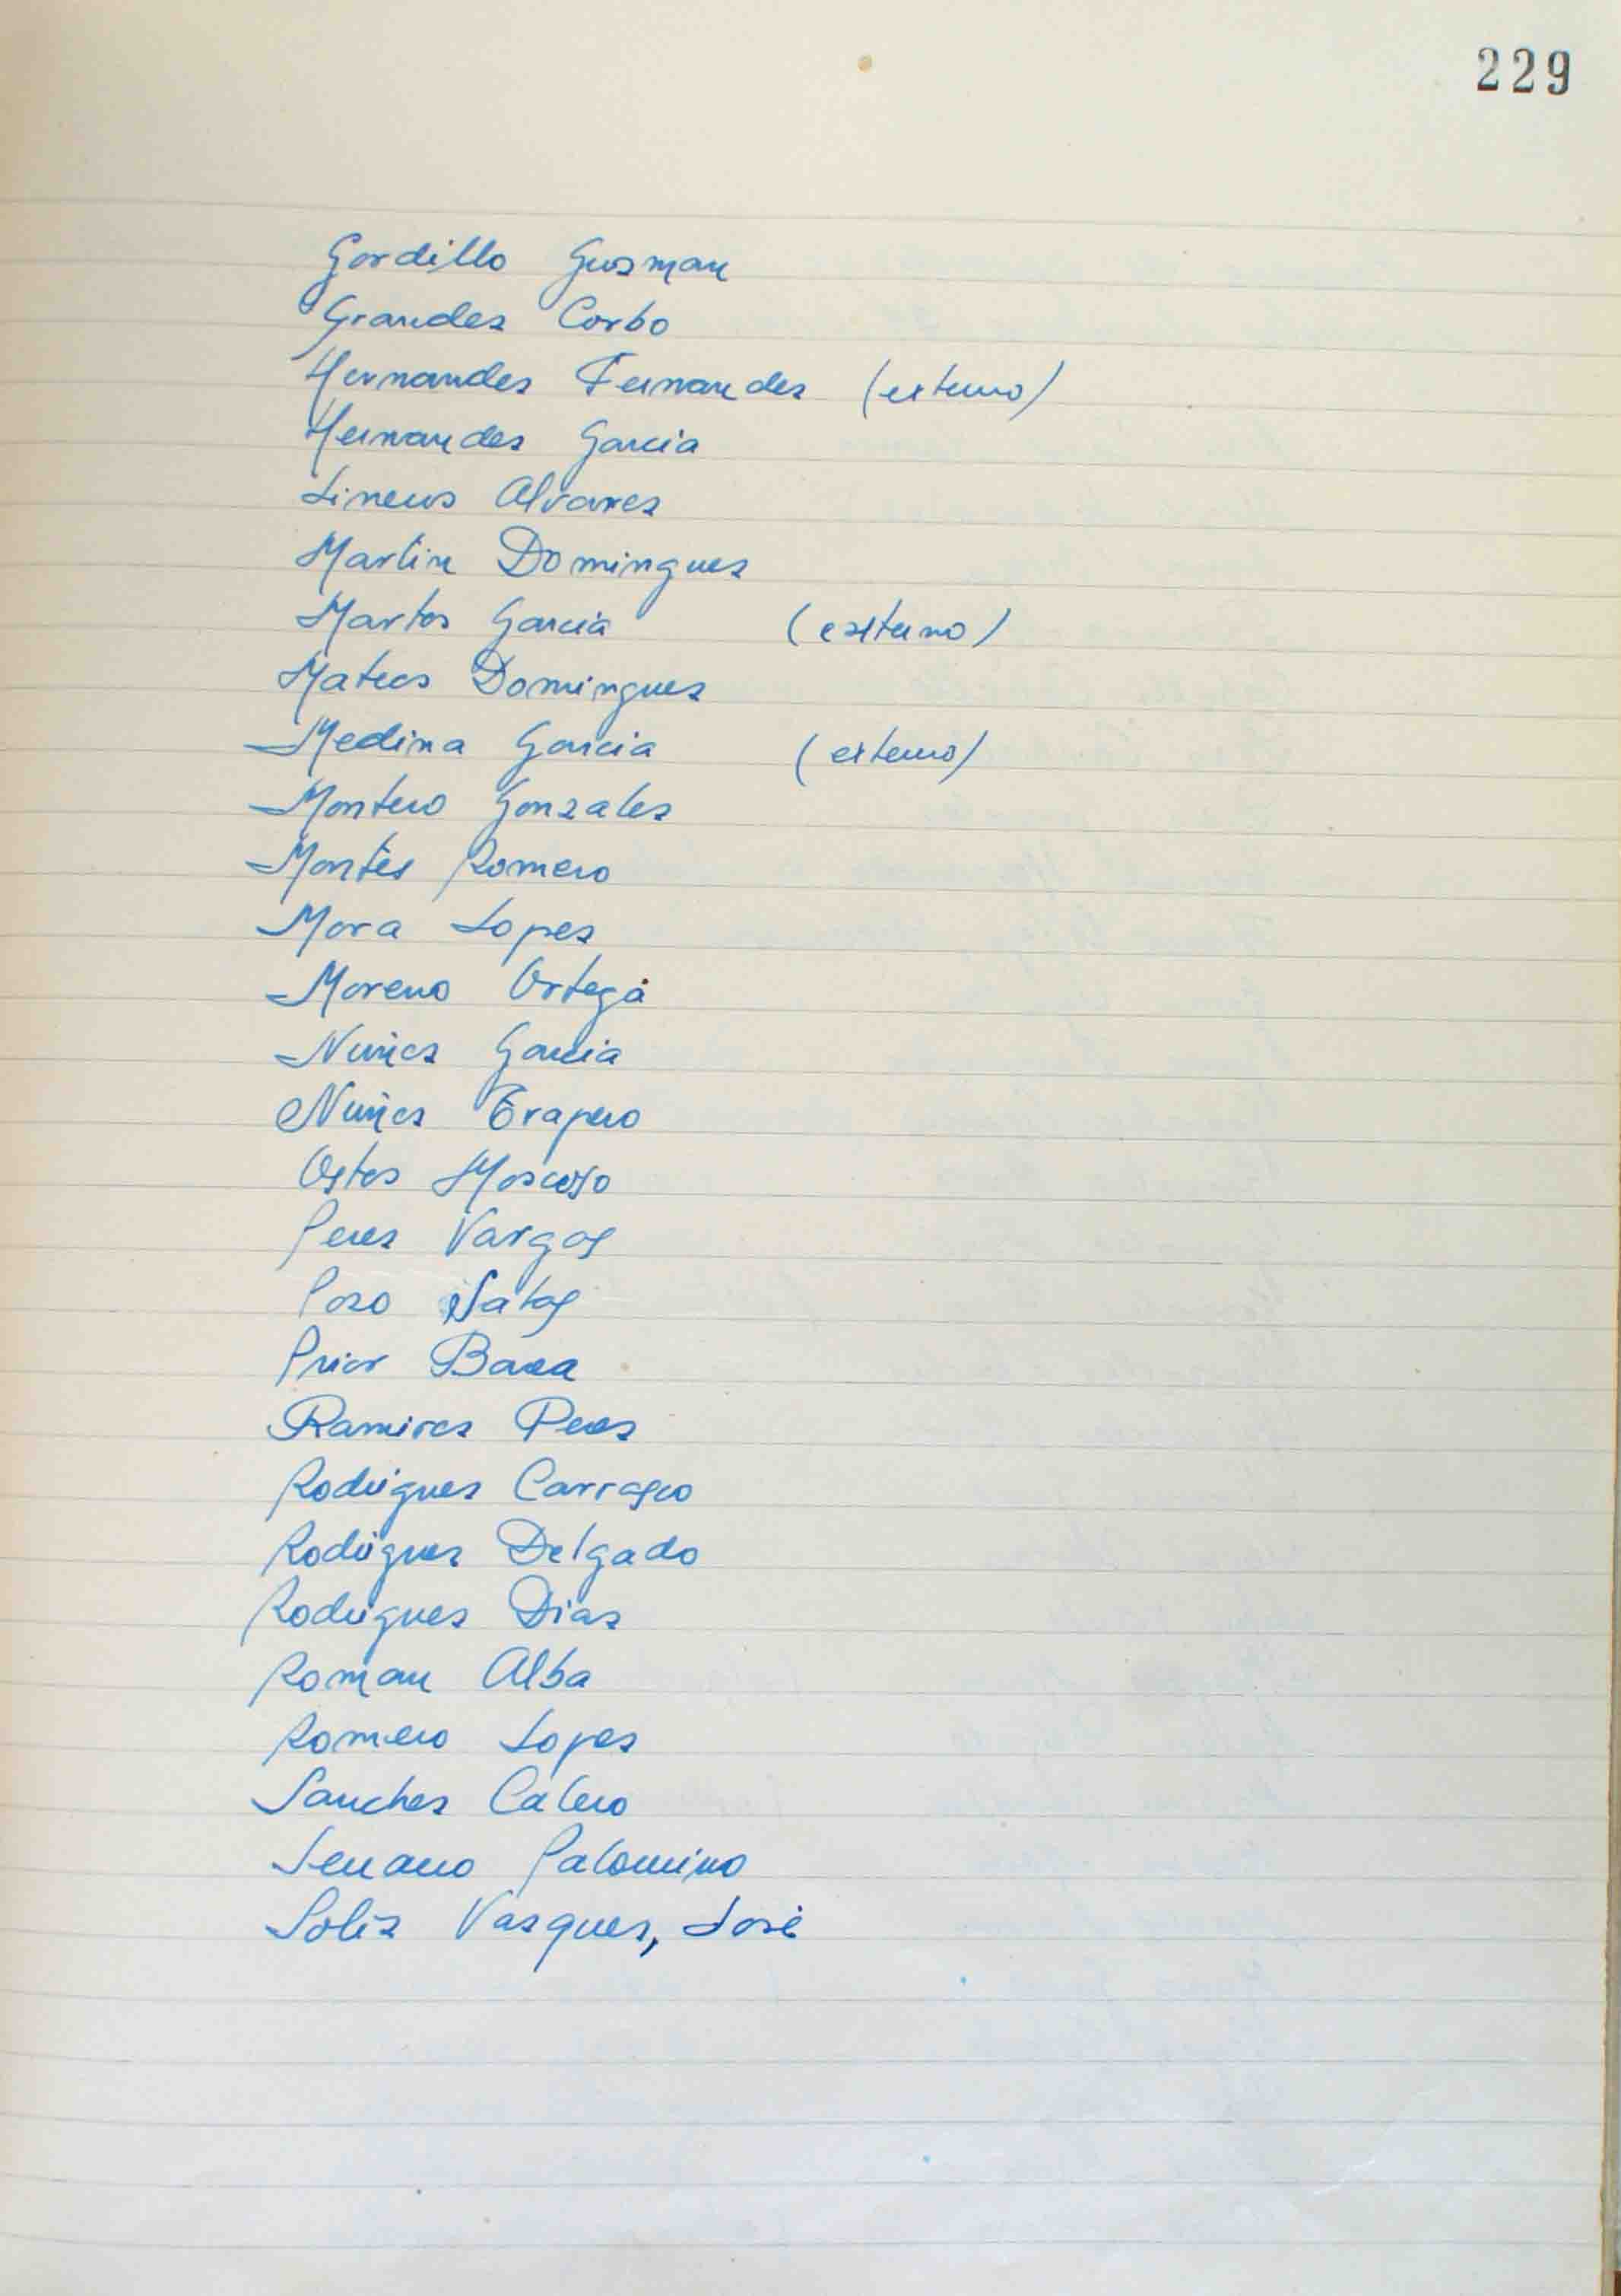 229
Gordillo Gusman
Grandes Corbo
Hernandes Fernandes (externo)
Hernandes Garcia
Lineros Alvares
Martin Domingues
Martos Garcia (externo)
Mateos Domingues
Medina Garcia (externo)
Montero Gonzales
Montes Romero
Mora Lopes
Moreno Ortega
Nuñes Garcia
Nuñes Trapero
Ostos Moscoso
Peres Vargas
Poso Natas
Prior Baena
Ramires Peres
Rodrigues Carrasco
Rodrigues Delgado
Rodrigues Dias
Roman Alba
Romero Lopes
Sanches Calero
Serrano Palomino
Solis Vasques, José